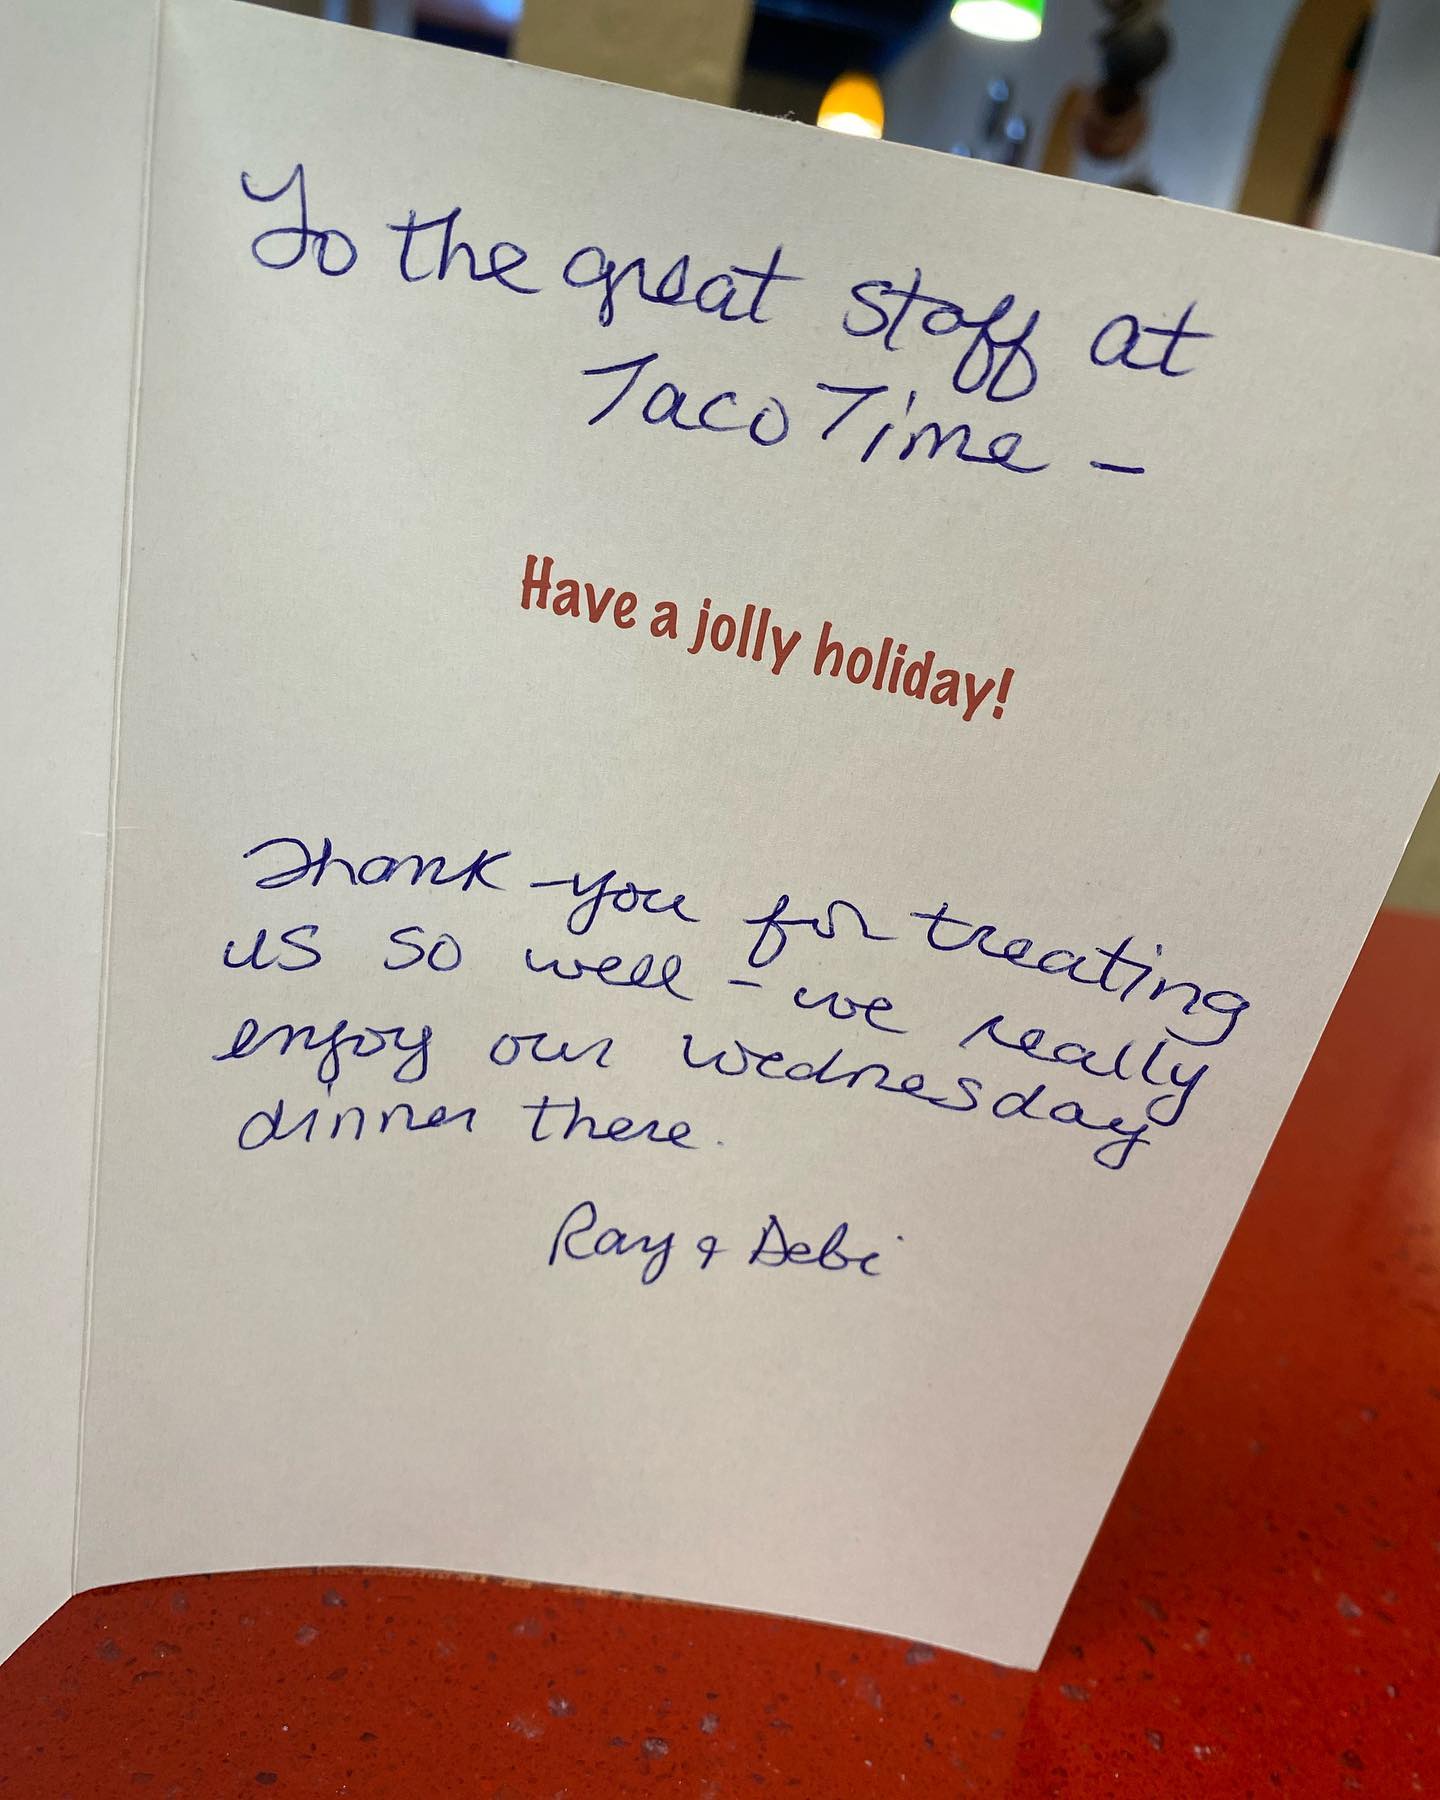 To the great staff at
Taco Time -
Have a jolly holiday!
Thank you for treating
us so well - we really
enjoy our wednesday
dinner there.
Ray & Debi